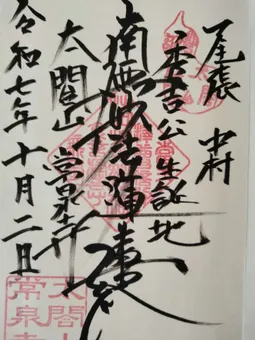 尾張 中村
秀吉公生誕地
南無妙法蓮華経
太閤山 常泉寺
令和七年十月二日
太閤山
常泉寺